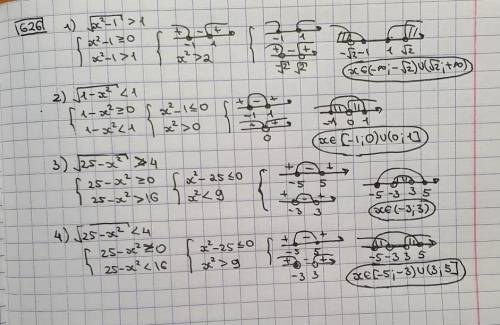 626
1) √x²-1 > 1
{ x²-1 ≥ 0
x²-1 > 1
{ + - +
-1 1
x² > 2
{ + - +
-1 1
+ - +
-√2 √2
-√2 -1 1 √2
x∈(-∞; -√2)∪(√2; +∞)
2) √1-x² < 1
{ 1-x² ≥ 0
1-x² < 1
{ x²-1 ≤ 0
x² > 0
{ + - +
-1 1
+ +
0
-1 0 1
x∈[-1; 0)∪(0; 1]
3) √25-x² > 4
{ 25-x² ≥ 0
25-x² > 16
{ x²-25 ≤ 0
x² < 9
{ + - +
-5 5
+ - +
-3 3
-5 -3 3 5
x∈(-3; 3)
4) √25-x² < 4
{ 25-x² ≥ 0
25-x² < 16
{ x²-25 ≤ 0
x² > 9
{ + - +
-5 5
+ - +
-3 3
-5 -3 3 5
x∈[-5; -3)∪(3; 5]